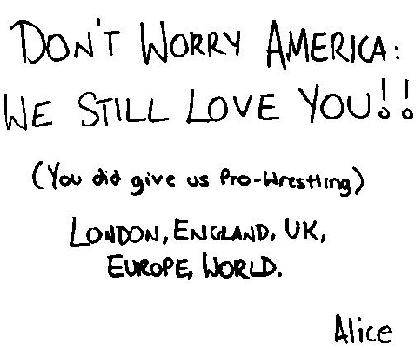 DON'T WORRY AMERICA:
WE STILL LOVE YOU!!
(You did give us Pro-Wrestling)
LONDON, ENGLAND, UK,
EUROPE, WORLD.
Alice